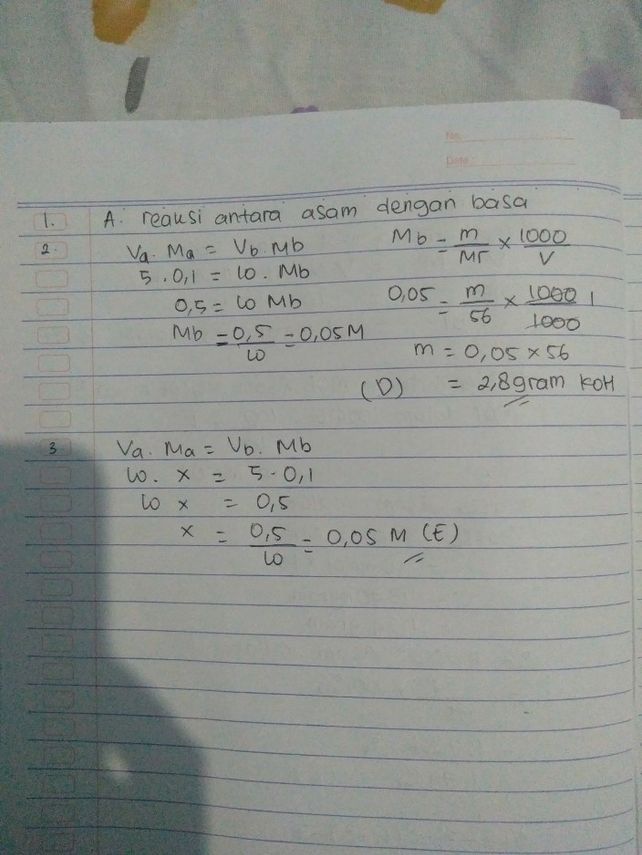 No.
Date:
1. A. reaksi antara asam dengan basa
2. Va. Ma = Vb. Mb
5 . 0,1 = 10 . Mb
0,5 = 10 Mb
Mb = 0,5/10 = 0,05 M
Mb = m/Mr × 1000/V
0,05 = m/56 × 1000/1000 1
m = 0,05 × 56
(D) = 2,8 gram KOH
3 Va. Ma = Vb. Mb
10. x = 5 . 0,1
10 x = 0,5
x = 0,5/10 = 0,05 M (E)